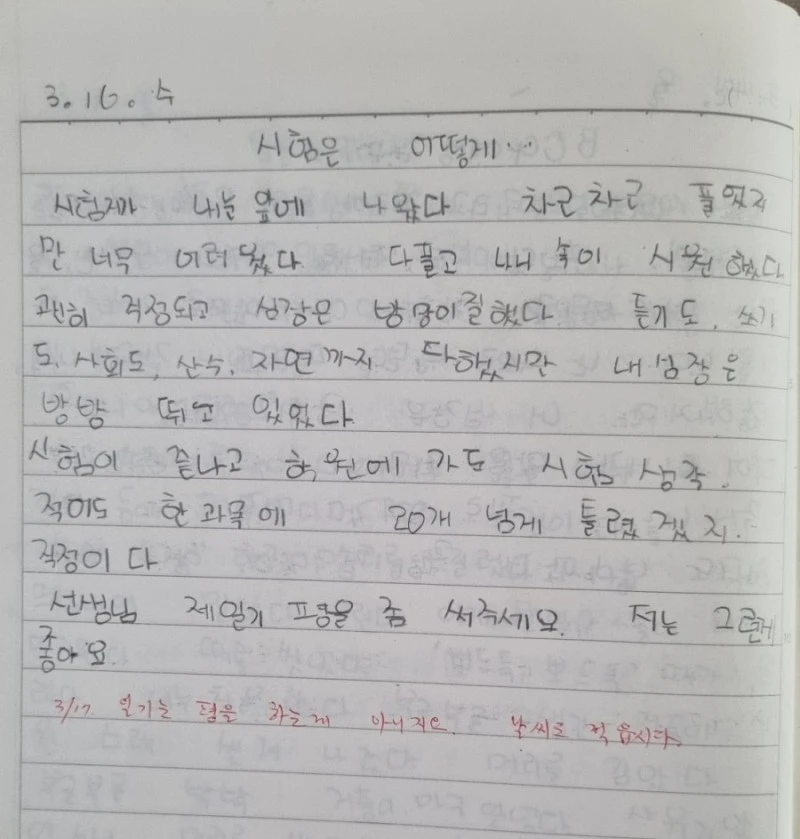 3. 16. 수
시험은 어떻게...
시험지가 내눈 앞에 나왔다 차근차근 풀었지
만 너무 어려웠다. 다풀고 나니 속이 시원했다
괜히 걱정되고 심장은 방망이질했다. 듣기도, 쓰기
도, 사회도, 산수, 자연까지 다했지만 내심장은
방방 뛰고 있었다
시험이 끝나고 학원에 가도 시험 생각.
적어도 한과목에 20개 넘게 틀렸겠지.
걱정이다
선생님 제일기 평을 좀 써주세요. 저는 그런게
좋아요.
3/17. 일기는 평을 하는게 아니지요. 날씨도 적읍시다.